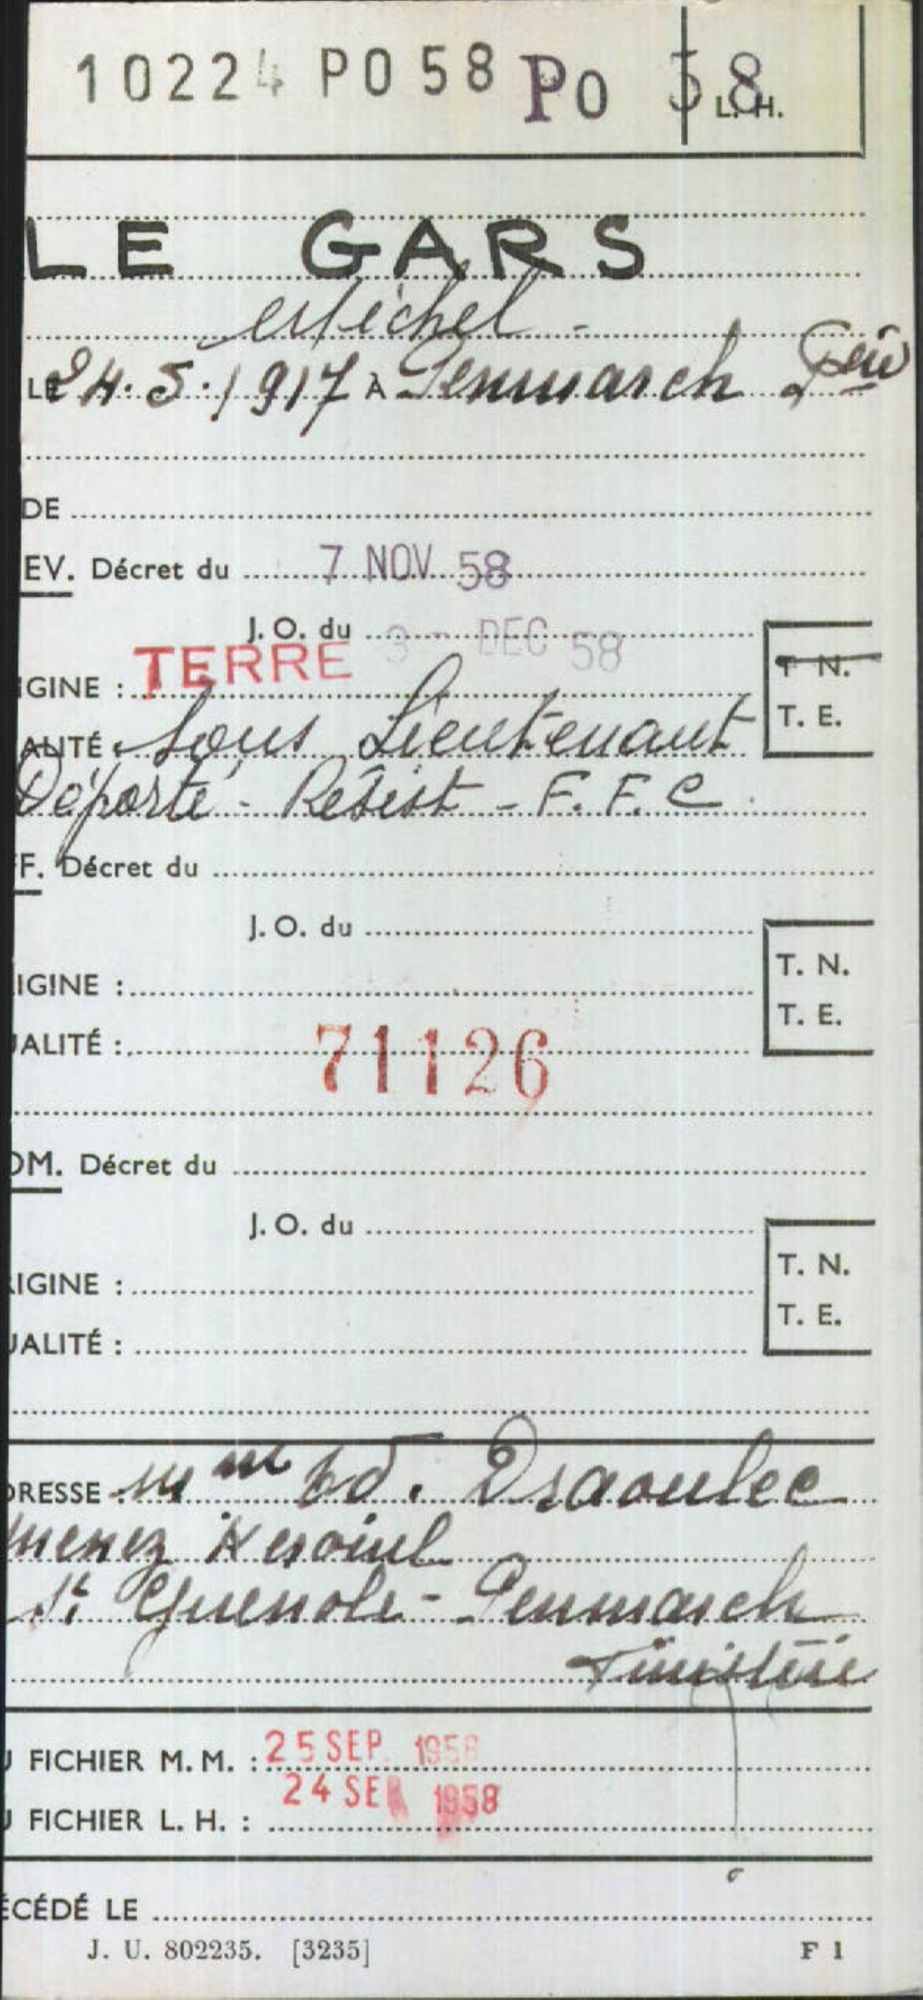 10224 PO 58 PO 58
L. H.
LE GARS
Michel -
LE 24.5.1917 À Penmarch
DE
EV. Décret du 7 NOV 58
J. O. du 3 - DEC 58
IGINE : TERRE
T N.
ALITÉ : Sous Lieutenant
T. E.
Déporté - Résist - F. F. C
F. Décret du
J. O. du
T. N.
IGINE :
T. E.
ALITÉ :
71126
OM. Décret du
J. O. du
T. N.
IGINE :
T. E.
UALITÉ :
DRESSE Mme Draoulec
Menez
St Guenolé - Penmarch
Finistère
U FICHIER M. M. : 25 SEP 1958
U FICHIER L. H. : 24 SEP 1958
ÉCÉDÉ LE
J. U. 802235. [3235] F 1